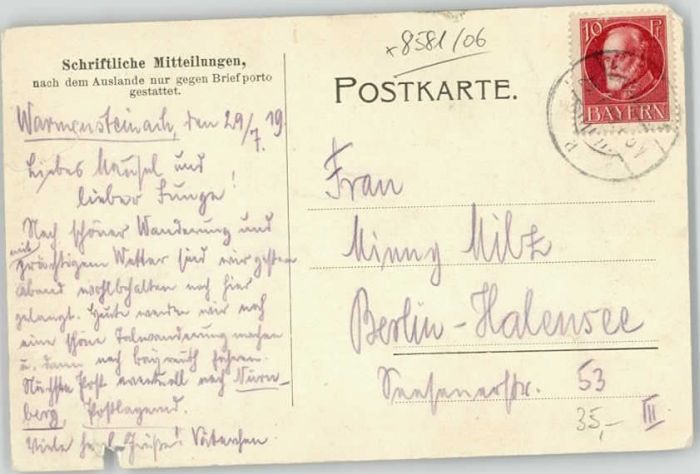 Schriftliche Mitteilungen,
nach dem Auslande nur gegen Briefporto
gestattet.
×8581/06
POSTKARTE.
10 Pf
BAYERN
Warmensteinach, den 29/7. 19
Liebes Mausel und
lieber Junge!
Nach schöner Wanderung und
mit prächtigem Wetter sind wir gestern
Abend wohlbehalten noch hier
gelangt. Heute werden wir noch
eine schöne Talwanderung machen
u. dann nach Bayreuth fahren.
Nächste Post eventuell nach Nürn-
berg, Postlagernd.
Viele herzl. Grüße! Väterchen
Frau
Minny Milz
Berlin-Halensee
Seesenerstr. 53
III
35,-